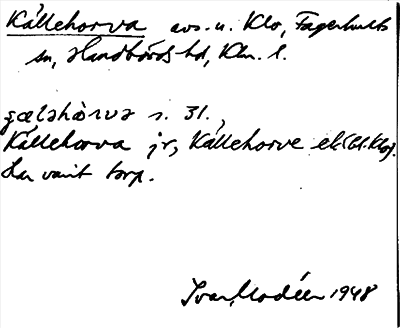 Källehorva avs. u. Klo, Fagerhults
sn, Handbörds hd, Klm. l.
s. 31.,
Källehorva jr, Källehorve ek (bl. Klo).
Har varit torp.
Ivar Modéer 1948